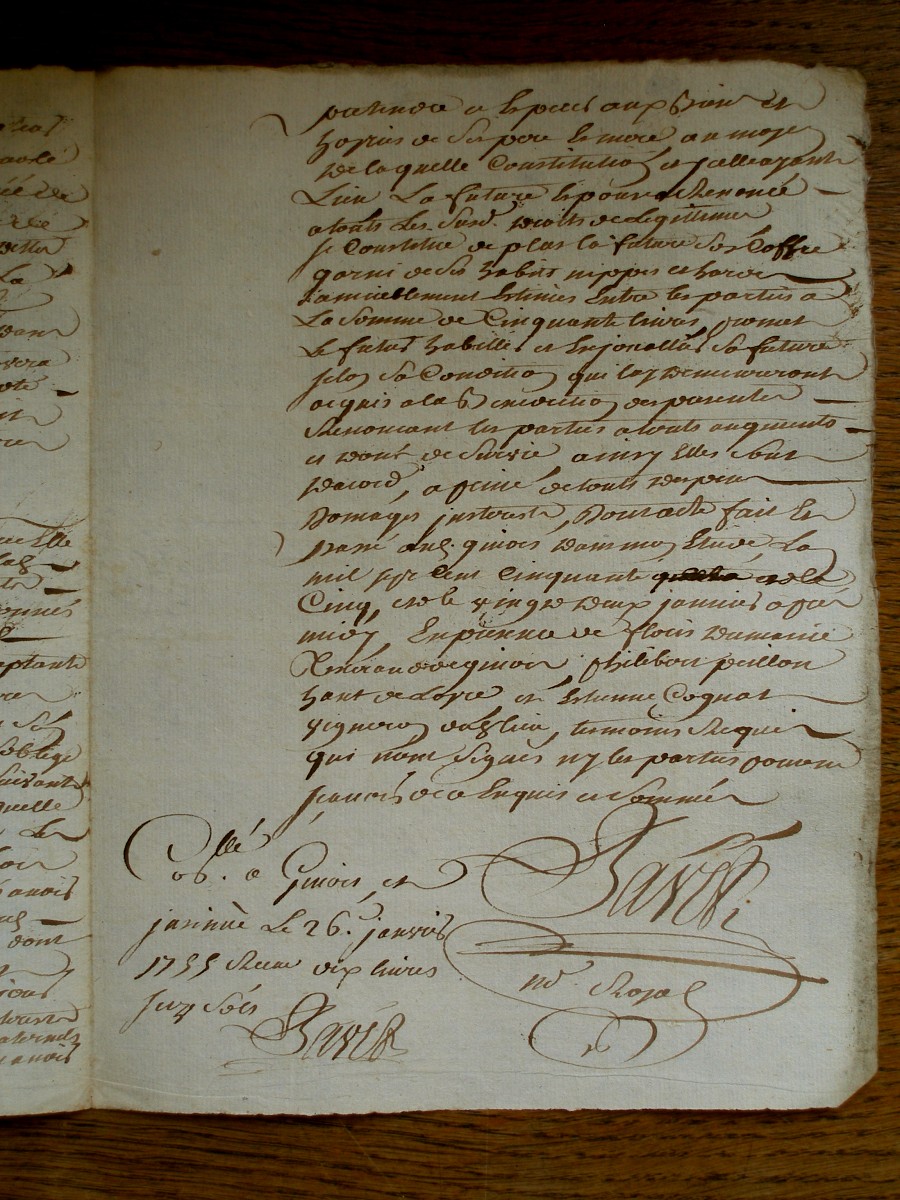 pretendre et Esperer aux Biens et
hoyries de Ses pere Et mere au moyen
De laquelle Constitution et jcelle ayant
Lieu La future Espouse a Renoncé
a touts Les Susd. droits de Legittime
se Constitue de plus la future Son Coffre
garni de Ses habits nippes et hardes
amiablement Estimés Entre les parties a
La Somme de Cinquante livres, promet
Le futur habiller et Enjoualler Sa future
selon Sa Condition qui luy demeureront
acquis a la Benediction des parents
Renoncant les parties a touts augments
et dons de Survie ainsy Elles Sont
dacord, a peine de touts depens
Domages jnterests, Dont acte fait Et
passé aud. guiois dans mon Etude La
mil sept Cent Cinquante
Cinq, et le vingt deux janvier apres
midy, En presence de
Philibert peillon
hant de Loyse et Estienne Cognat
vigneron dud. lieu, temoins Requis
qui nont Signés ny les parties pour ne
scavoir de ce Enquis et Sommés
Collé
Cob. a Guiois, et
jnsinué Le 26e. janvier
1755 Recu dix livres
Six Sols
not. Royal